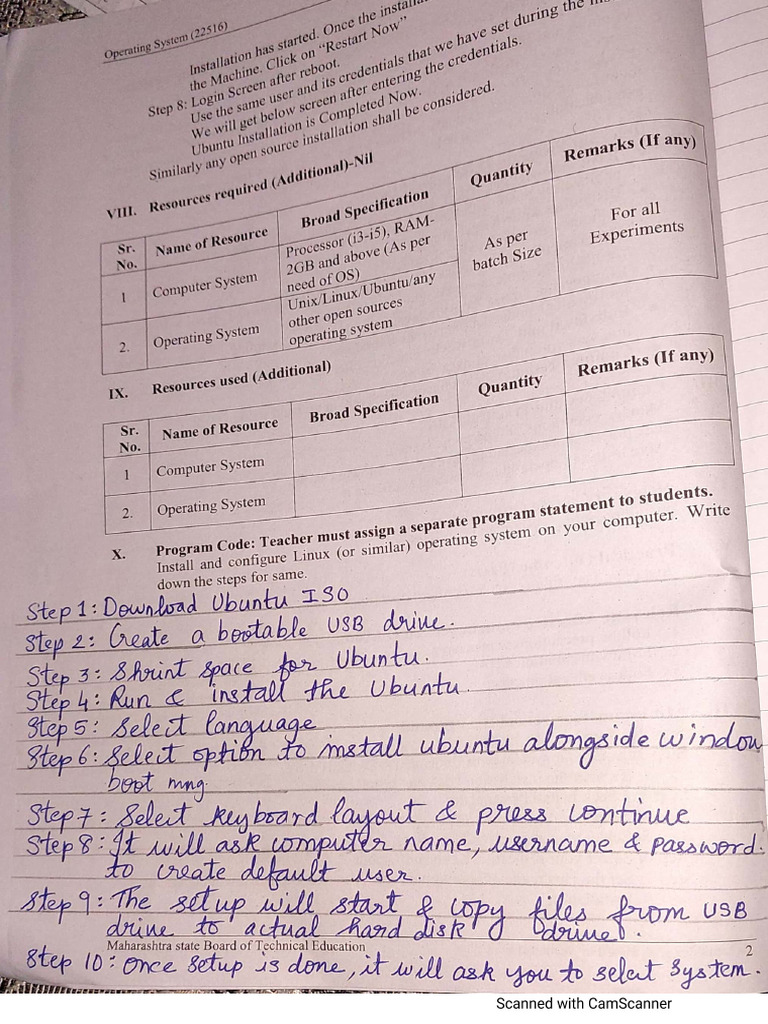 Operating System (22516)
Installation has started. Once the
the Machine. Click on “Restart Now”
Step 8: Login Screen after reboot.
Use the same user and its credentials that we have set during the
We will get below screen after entering the credentials.
Ubuntu Installation is Completed Now.
Similarly any open source installation shall be considered.
VIII. Resources required (Additional)-Nil
Sr. No. Name of Resource Broad Specification Quantity Remarks (If any)
1 Computer System Processor (i3-i5), RAM-
2GB and above (As per
need of OS)
As per
batch Size
For all
Experiments
2. Operating System Unix/Linux/Ubuntu/any
other open sources
operating system
IX. Resources used (Additional)
Sr. No. Name of Resource Broad Specification Quantity Remarks (If any)
1 Computer System
2. Operating System
X. Program Code: Teacher must assign a separate program statement to students.
Install and configure Linux (or similar) operating system on your computer. Write
down the steps for same.
Step 1: Download Ubuntu ISO
Step 2: Create a bootable USB drive.
Step 3: Shrint space for Ubuntu.
Step 4: Run & install the Ubuntu.
Step 5: Select language
Step 6: Select option to install ubuntu alongside window
boot mng.
Step 7: Select keyboard layout & press continue
Step 8: It will ask computer name, username & password.
to create default user.
Step 9: The setup will start & copy files from USB
drive to actual hard disk drive.
Maharashtra state Board of Technical Education
2
Step 10: Once setup is done, it will ask you to select system.
Scanned with CamScanner